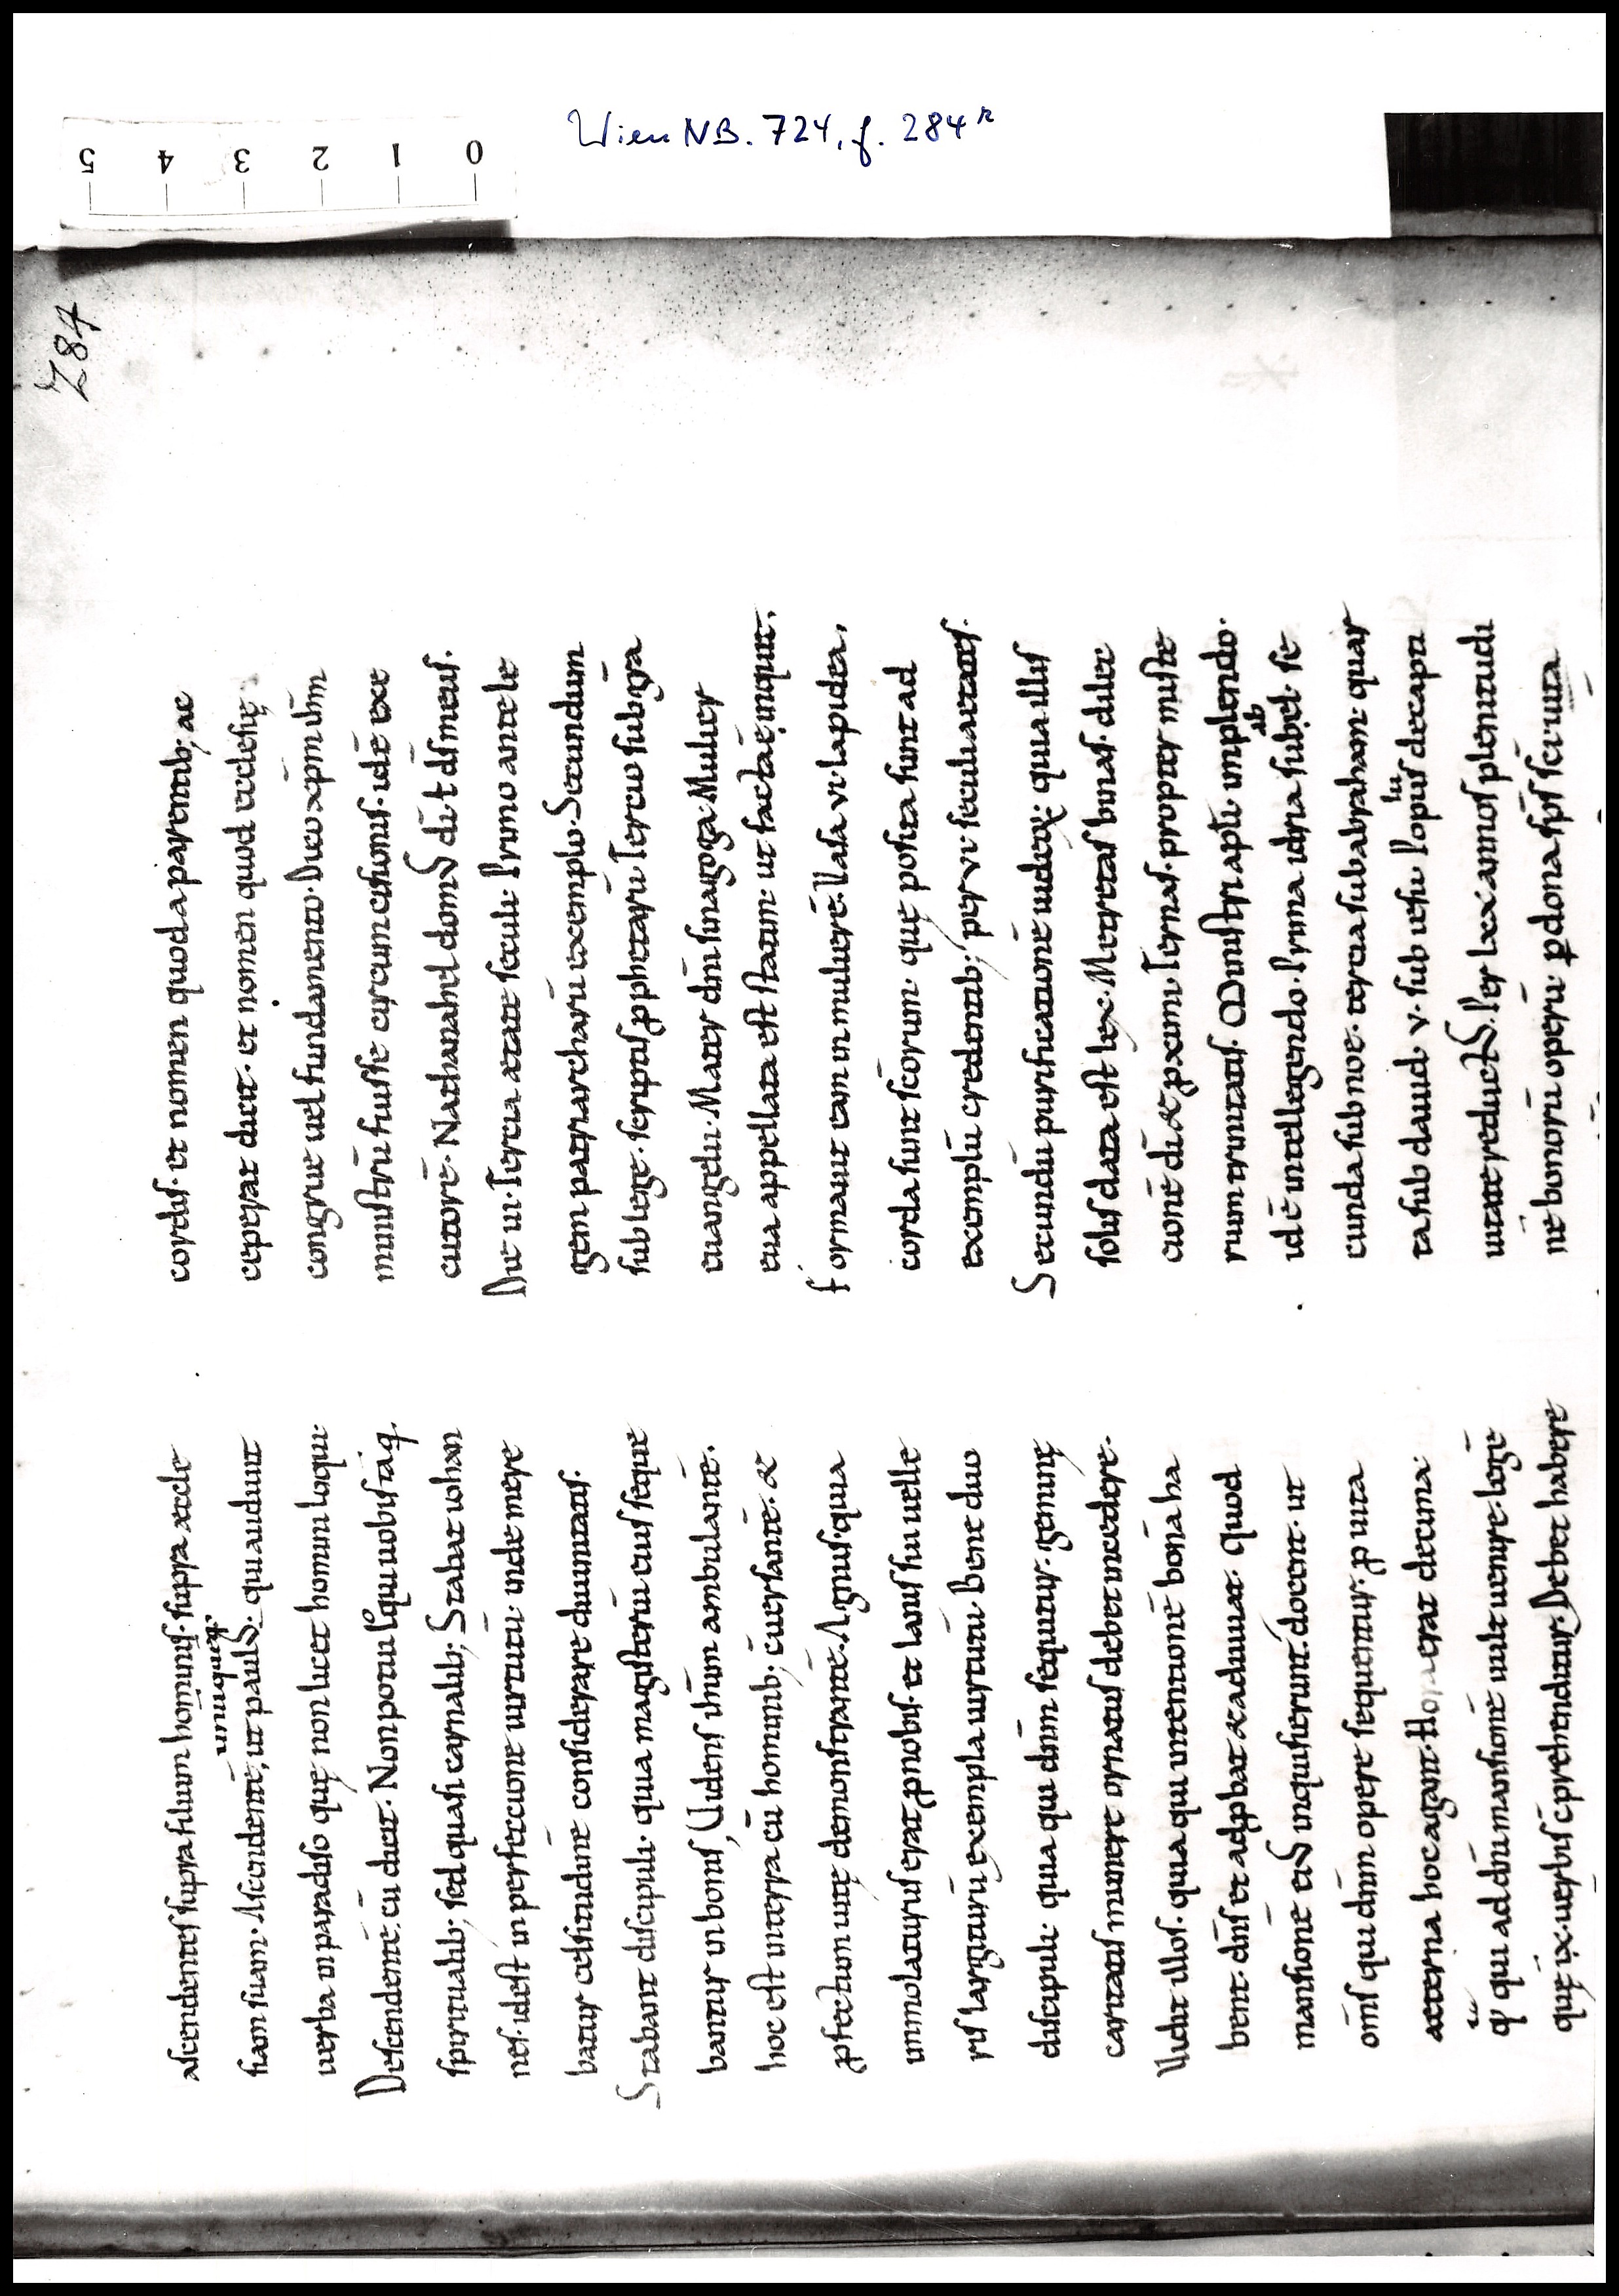 Wien NB. 724, f. 284r
0 1 2 3 4 5
284
ascendentes supra filium hominis. supra æccle
siam suam. Ascendente, ut pauls̄. qui audiuit
unuquēq;
uerba in paradiso quę non licet homini loqui.
Descendentē. cū dicit. Non potui loqui uobis tāq̄.
spiritualib; sed quasi carnalib; Stabat iohan
nes. id est in perfectione uirtutū. inde mere
batur celsitudinē considerare diuinitatis.
Stabant discipuli. quia magisteriū eius seque
bantur in bonis, Uidens ih̄m ambulantē.
hoc est in terra cū hominib; c̄uersantē. &
ꝓfectum uitę demonstrantē. Agnus. quia
immolaturus erat ꝓ nobis. et lanis sui uelle
ris largiturū exempla uirtutū. Bene duo
discipuli. quia qui dn̄m sequitur. geminę
caritatis munere ornatus debet incedere.
Uidit illos. quia qui intentionē bonā ha
bent. dn̄s et adꝓbat & adiuuat. quod
mansionē ei᷒ inquisierunt. docent. ut
om̄s qui dn̄m opere sequentur. ꝓ uita
aeterna hoc agant. Hora erat decima.
q̄ qui ad dn̄i mansionē uult uenire. legē
quę ix. uerbis c̄prehenditur. Debet habere
cordis. et nomen quod a parentib; ac
ceperat dicit. et nomen quod ecclesię
congrue uel fundamento. Dico xp̄m ih̄m
ministrū fuisse circumcisionis. id ē exe
cutorē. Nathanahel domus di ł ds̄ meus.
Die iii. Tercia aetate seculi. Primo ante le
gem patriarcharū exemplo. Secundum
sub lege. scriptis ꝓphetarū Tercio sub gr̄a
euangelii. Mater dn̄i sinagoga. Mulier
eua appellata est statim. ut facta ē. inquit.
formauit eam in mulierē. Uasa vi. lapidea.
corda sunt sc̄orum. quę posita sunt ad
exemplū credentib; per vi. seculi aetates.
Secundū purificationē iudęor̄. quia illis
solis data est lex. Metretas binas. dilec
tionē di & ꝓximi. Ternas. propter miste
rium trinitatis. Ministri apli. implendo.
id ē intellegendo. Prima idria sub abel. se
ab
cunda sub noe. tercia sub abraham. quar
ta sub dauid. v. sub iesu. Popus de capti
lu
uitate reduct᷒. Per lxx annos plenitudi
nē bonorū operū. ꝑ dona sp̄s sc̄i. uita